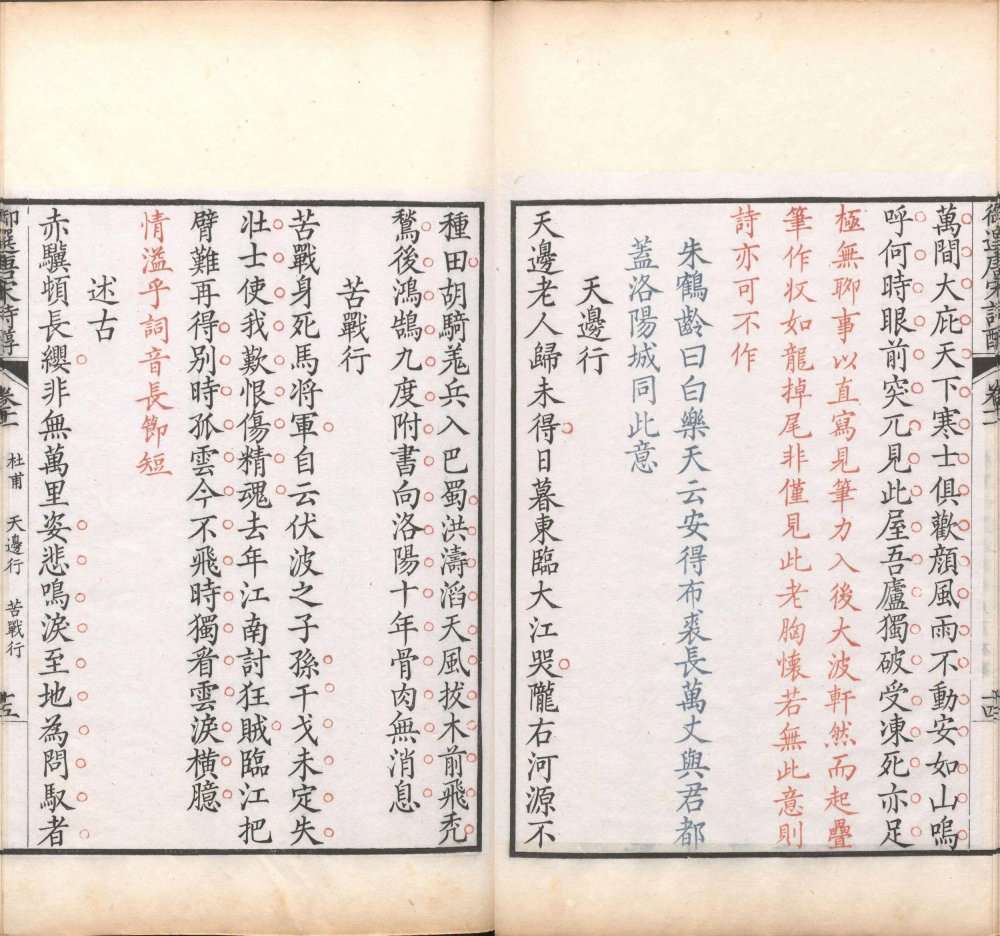 御選唐宋詩醇 卷十一
十四
萬間大庇天下寒士俱歡顔風雨不動安如山嗚
呼何時眼前突兀見此屋吾廬獨破受凍死亦足
極無聊事以直寫見筆力入後大波軒然而起疊
筆作収如龍掉尾非僅見此老胸懷若無此意則
詩亦可不作
朱鶴齡曰白樂天云安得布裘長萬丈與君都
蓋洛陽城同此意
天邊行
天邊老人歸未得日暮東臨大江哭隴右河源不
種田胡騎羌兵入巴蜀洪濤滔天風拔木前飛禿
鶖後鴻鵠九度附書向洛陽十年骨肉無消息
苦戰行
苦戰身死馬將軍自云伏波之子孫干戈未定失
壯士使我歎恨傷精魂去年江南討狂賊臨江把
臂難再得别時孤雲今不飛時獨看雲淚橫臆
情溢乎詞音長節短
述古
赤驥頓長纓非無萬里姿悲鳴淚至地為問馭者
御選唐宋詩醇 卷十一 杜甫 天邊行 苦戰行 十五